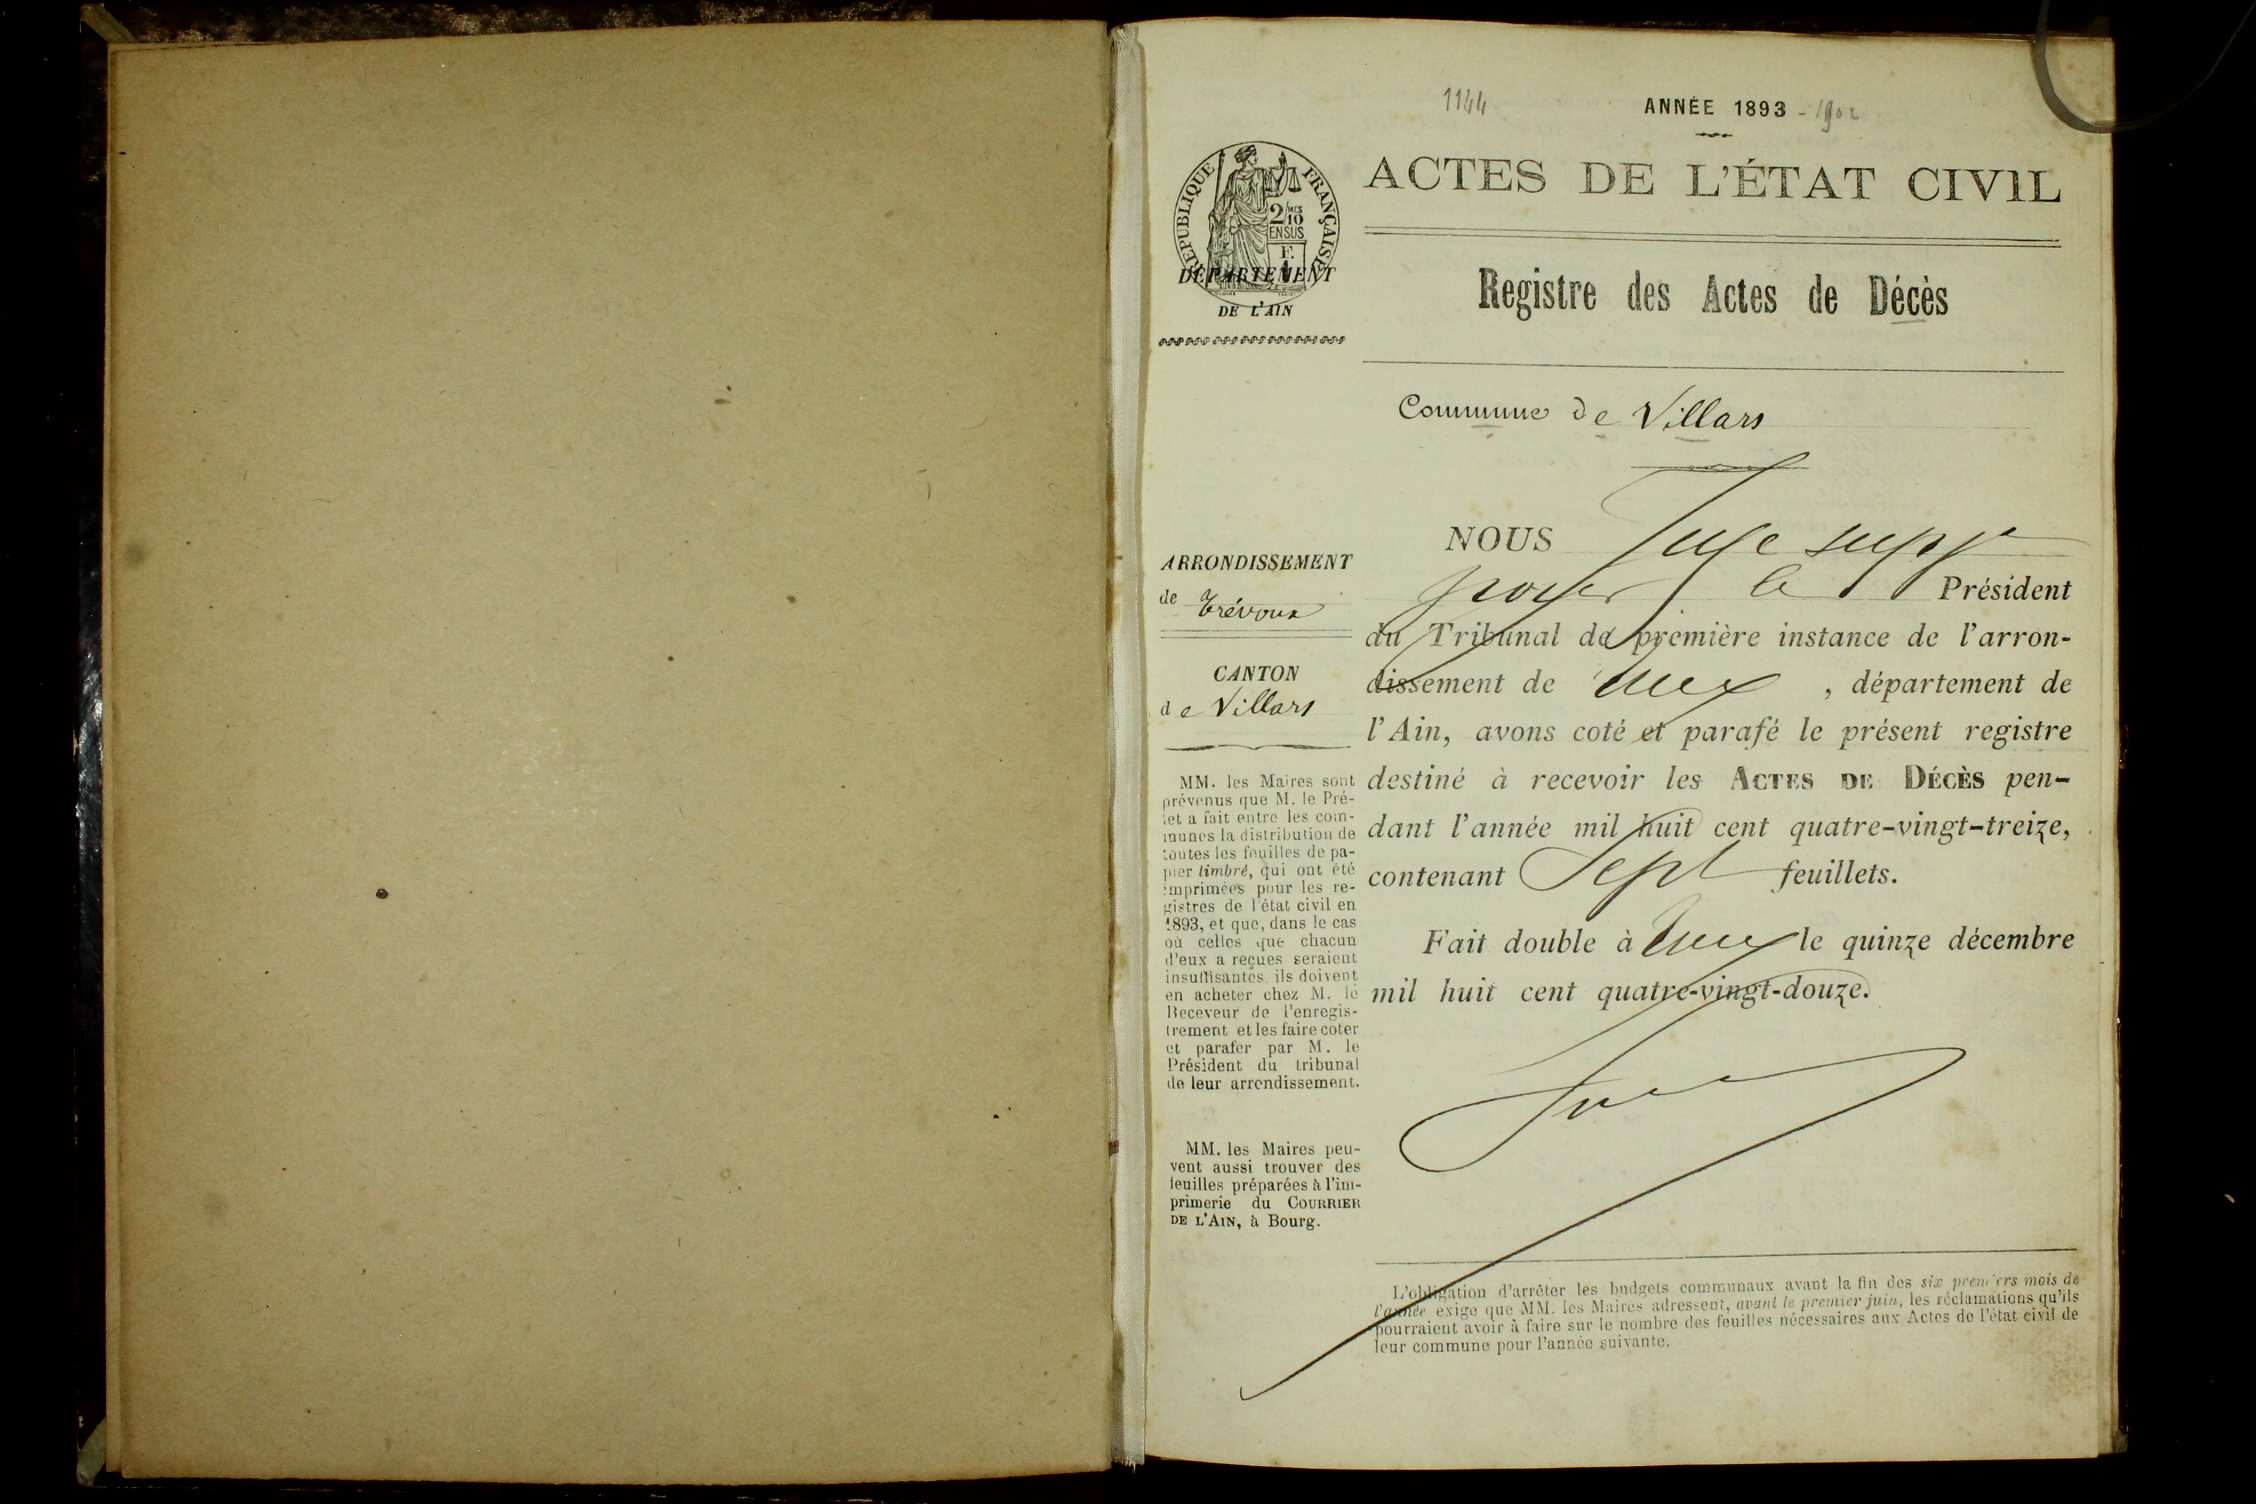 1144
ANNÉE 1893 - 1902
ACTES DE L'ÉTAT CIVIL
RÉPUBLIQUE FRANÇAISE
2/10 MES
EN SUS
F.
DÉPARTEMENT
DE L'AIN
Registre des Actes de Décès
Commune de Villars
ARRONDISSEMENT
de Trévoux
CANTON
de Villars
MM. les Maires sont
prévenus que M. le Pré-
fet a fait entre les com-
munes la distribution de
toutes les feuilles de pa-
pier timbré, qui ont été
imprimées pour les re-
gistres de l'état civil en
1893, et que, dans le cas
où celles que chacun
d'eux a reçues seraient
insuffisantes ils doivent
en acheter chez M. le
Receveur de l'enregis-
trement et les faire coter
et parafer par M. le
Président du tribunal
de leur arrondissement.
MM. les Maires peu-
vent aussi trouver des
feuilles préparées à l'im-
primerie du COURRIER
DE L'AIN, à Bourg.
NOUS Juge supp
pour le Président
du Tribunal de première instance de l'arron-
dissement de , département de
l'Ain, avons coté et parafé le présent registre
destiné à recevoir les ACTES DE DÉCÈS pen-
dant l'année mil huit cent quatre-vingt-treize,
contenant Sept feuillets.
Fait double à le quinze décembre
mil huit cent quatre-vingt-douze.
L'obligation d'arrêter les budgets communaux avant la fin des six premiers mois de
l'année exige que MM. les Maires adressent, avant le premier juin, les réclamations qu'ils
pourraient avoir à faire sur le nombre des feuilles nécessaires aux Actes de l'état civil de
leur commune pour l'année suivante.